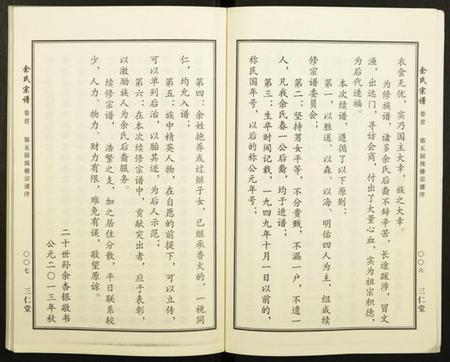 余氏宗谱
卷首
第五届续修宗谱序
〇〇六
三仁堂
衣食无忧，实乃国主大幸，族之大幸。
为修族谱，诸多余氏后裔不辞辛苦，长途跋涉，冒文
渔，出远门，寻访会商，付出了大量心血，实为祖宗积德，
为后代造福。
本次续谱，遵循了以下原则：
第一，以胜道、以森、以海、明佑四人为主，组成续
修宗谱委员会；
第二：坚持男女平等，不分贵贱，不漏一户，不遗一
人，凡我余氏春一公后裔，均于进谱；
第三：生卒时间记载，一九四九年十月一日以前的，
称民国年号，以后的称公元年号；
第四：余姓抱养或过继子女，已继承香火的，一视同
仁，均允入谱；
第五：族中精英人物，在自愿的前提下，可以立传，
可以单列后治，以胎其迹，为后人示范；
第六：在本次续修宗谱中，贡献突出者，应于表彰，
以激励族人为余氏后裔服务。
续修宗谱，浩繁之支，加之居住分散，平日联系较
少，人力、物力、财力有限，难免有误，敬望原谅。
二十世孙余香银敬书
公元二〇一三年秋
余氏宗谱
卷首
第五届续修宗谱序
〇〇七
三仁堂